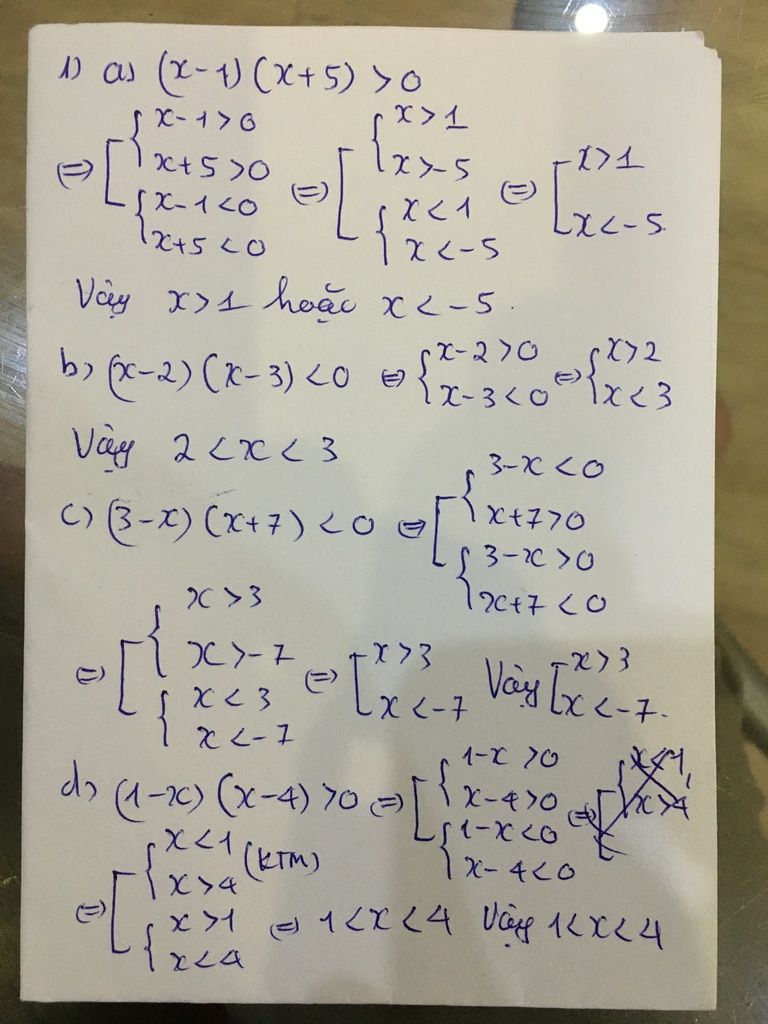 1) a) (x-1)(x+5) >0
(=) [ { x-1>0
x+5 >0
{ x-1<0
x+5 <0
(=) [ { x>1
x>-5
{ x<1
x<-5
(=) [ x>1
x<-5.
Vậy x>1 hoặc x<-5.
b) (x-2)(x-3) <0 (=) { x-2>0
x-3<0
(=) { x>2
x<3
Vậy 2<x<3
c) (3-x)(x+7) <0 (=) [ { 3-x<0
x+7>0
{ 3-x>0
x+7<0
(=) [ { x>3
x>-7
{ x<3
x<-7
(=) [ x>3
x<-7
Vậy [ x>3
x<-7.
d) (1-x)(x-4) >0 (=) [ { 1-x>0
x-4>0
{ 1-x<0
x-4<0
(=) [ { x<1
x>4
(=) [ { x<1
x>4 (KTM)
{ x>1
x<4
(=) 1<x<4 Vậy 1<x<4